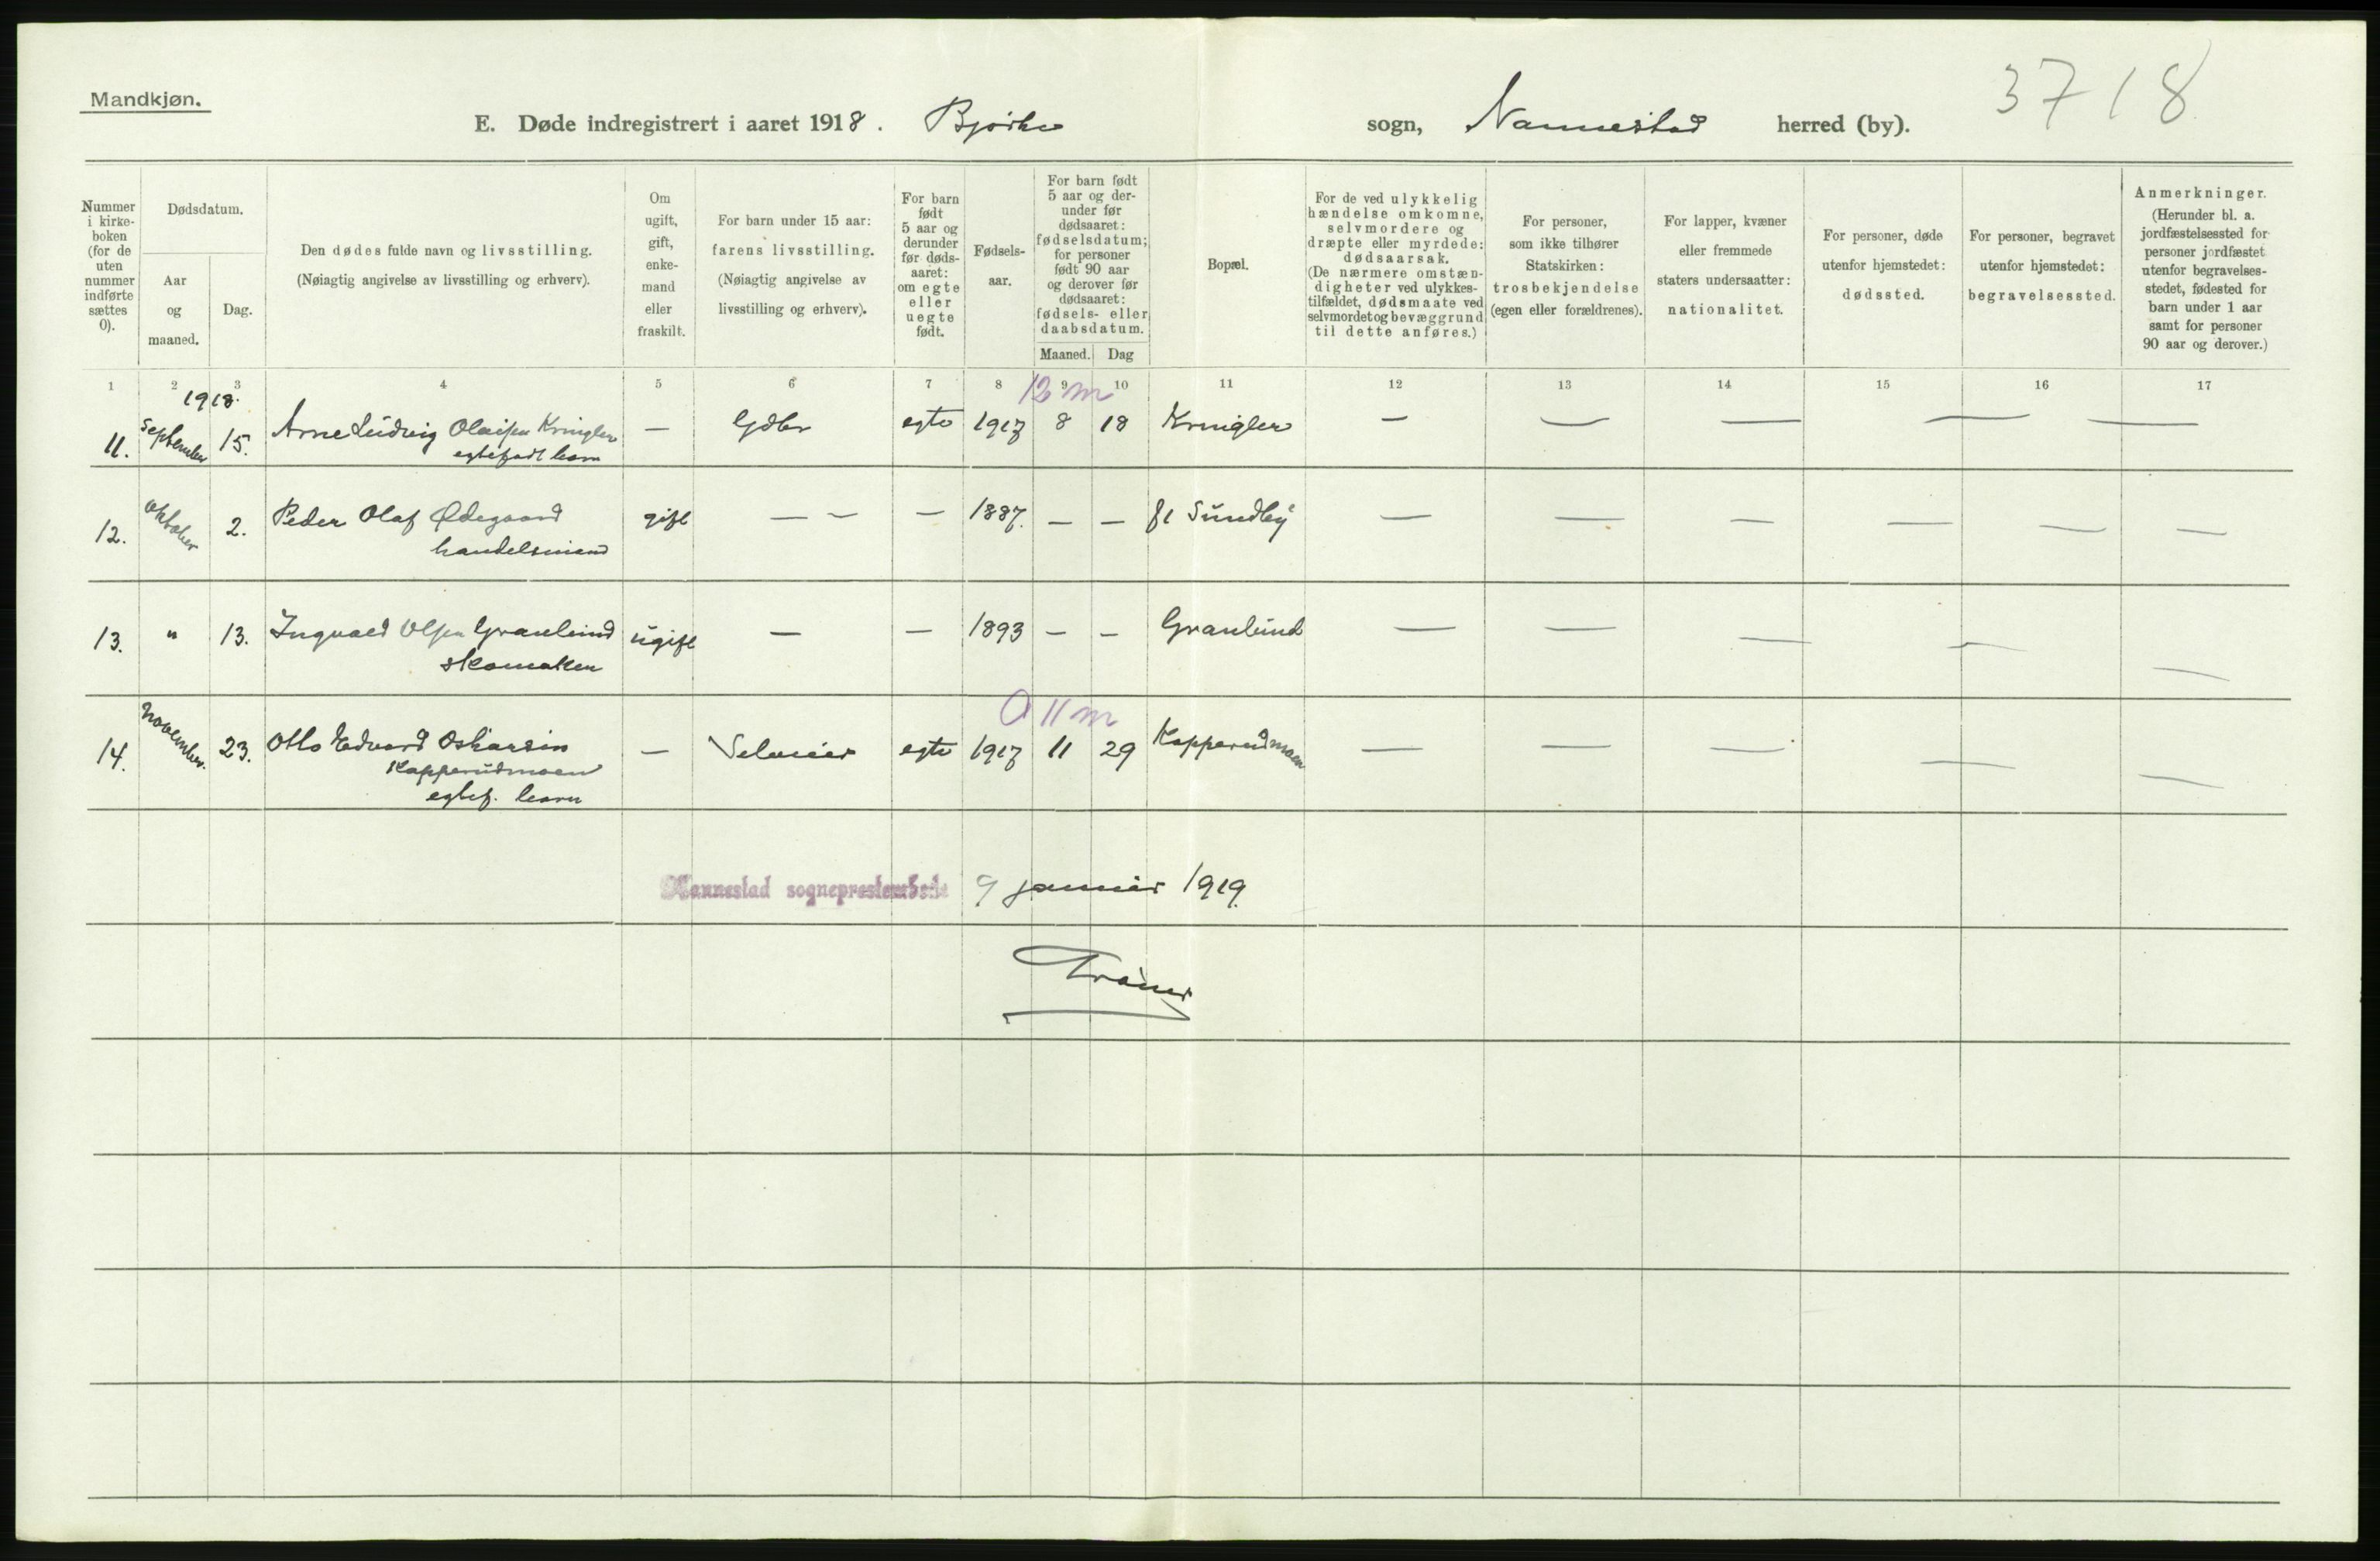 Mandkjøn.
3718
E. Døde indregistrert i aaret 1918. Bjørke sogn, Nannestad herred (by).
Nummer i kirke-boken (for de uten nummer indførte sættes 0).
Dødsdatum.
Aar og maaned.
Dag.
Den dødes fulde navn og livsstilling.
(Nøiagtig angivelse av livsstilling og erhverv).
Om ugift, gift, enke-mand eller fraskilt.
For barn under 15 aar: farens livsstilling. (Nøiagtig angivelse av livsstilling og erhverv).
For barn født 5 aar og derunder før døds-aaret: om egte eller uegte født.
Fødsels-aar.
For barn født 5 aar og der-under før dødsaaret: fødselsdatum; for personer født 90 aar og derover før dødsaaret: fødsels- eller daabsdatum.
Maaned. Dag
Bopæl.
For de ved ulykkelig hændelse omkomne, selvmordere og dræpte eller myrdede: dødsaarsak. (De nærmere omstæn-digheter ved ulykkes-tilfældet, dødsmaate ved selvmordet og bevæggrund til dette anføres.)
For personer, som ikke tilhører Statskirken: trosbekjendelse (egen eller forældrenes).
For lapper, kvæner eller fremmede staters undersaatter: nationalitet.
For personer, døde utenfor hjemstedet: dødssted.
For personer, begravet utenfor hjemstedet: begravelsessted.
Anmerkninger. (Herunder bl. a. jordfæstelsessted for personer jordfæstet utenfor begravelses-stedet, fødested for barn under 1 aar samt for personer 90 aar og derover.)
1 2 3 4 5 6 7 8 9 10 11 12 13 14 15 16 17
1918. 12 m
11. September 15. Arne Ludvig Olaisen Kringler — Gdbr egte 1917 8 18 Kringler — — — — —
egtefødt barn
12. Oktober 2. Peder Olaf Ødegaard gift — — — 1887. — — Sundby — — — — — —
handelsmand
13. " 13. Ingvald Olsen Granlund ugift — — 1893 — — Granlund — — — — —
skomaker
0 11 m
14. November. 23. Otto Edvard Oskarsen — egte 1917 11 29 Kopperudmoen — — — — —
Kopperudmoen
egtef. barn
Nannestad sogneprestembede 9 januar 1919.